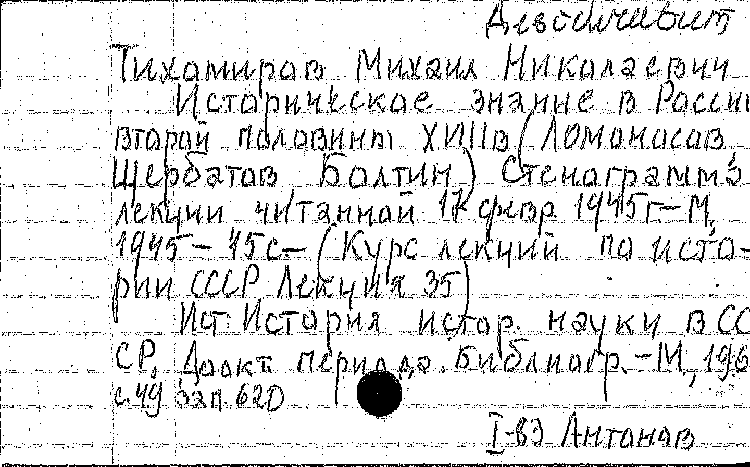 Тихомиров Михаил Николаевич
Историческое знание в России
второй половины XVIIIв (Ломоносов
Щербатов Болтин) Стенограмма
лекции читанной 17 февр 1945г–М,
1945– 45с–(Курс лекций по исто-
рии СССР Лекция 35)
Ист История истор. науки в СС
СР, Доокт периода. Библиогр.–М, 196
с.49 зап. 620
I-вэ Антонов